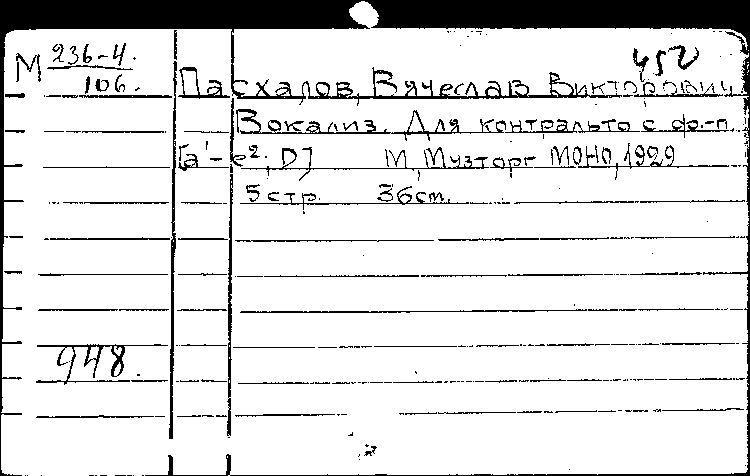 М 236-4. 452
106. Пасхалов, Вячеслав Викторович
Вокализ. Для контральто с ф.-п.
[a'-e²; D] М, Музторг МОНО, 1929
5 стр. 36 см.
948.